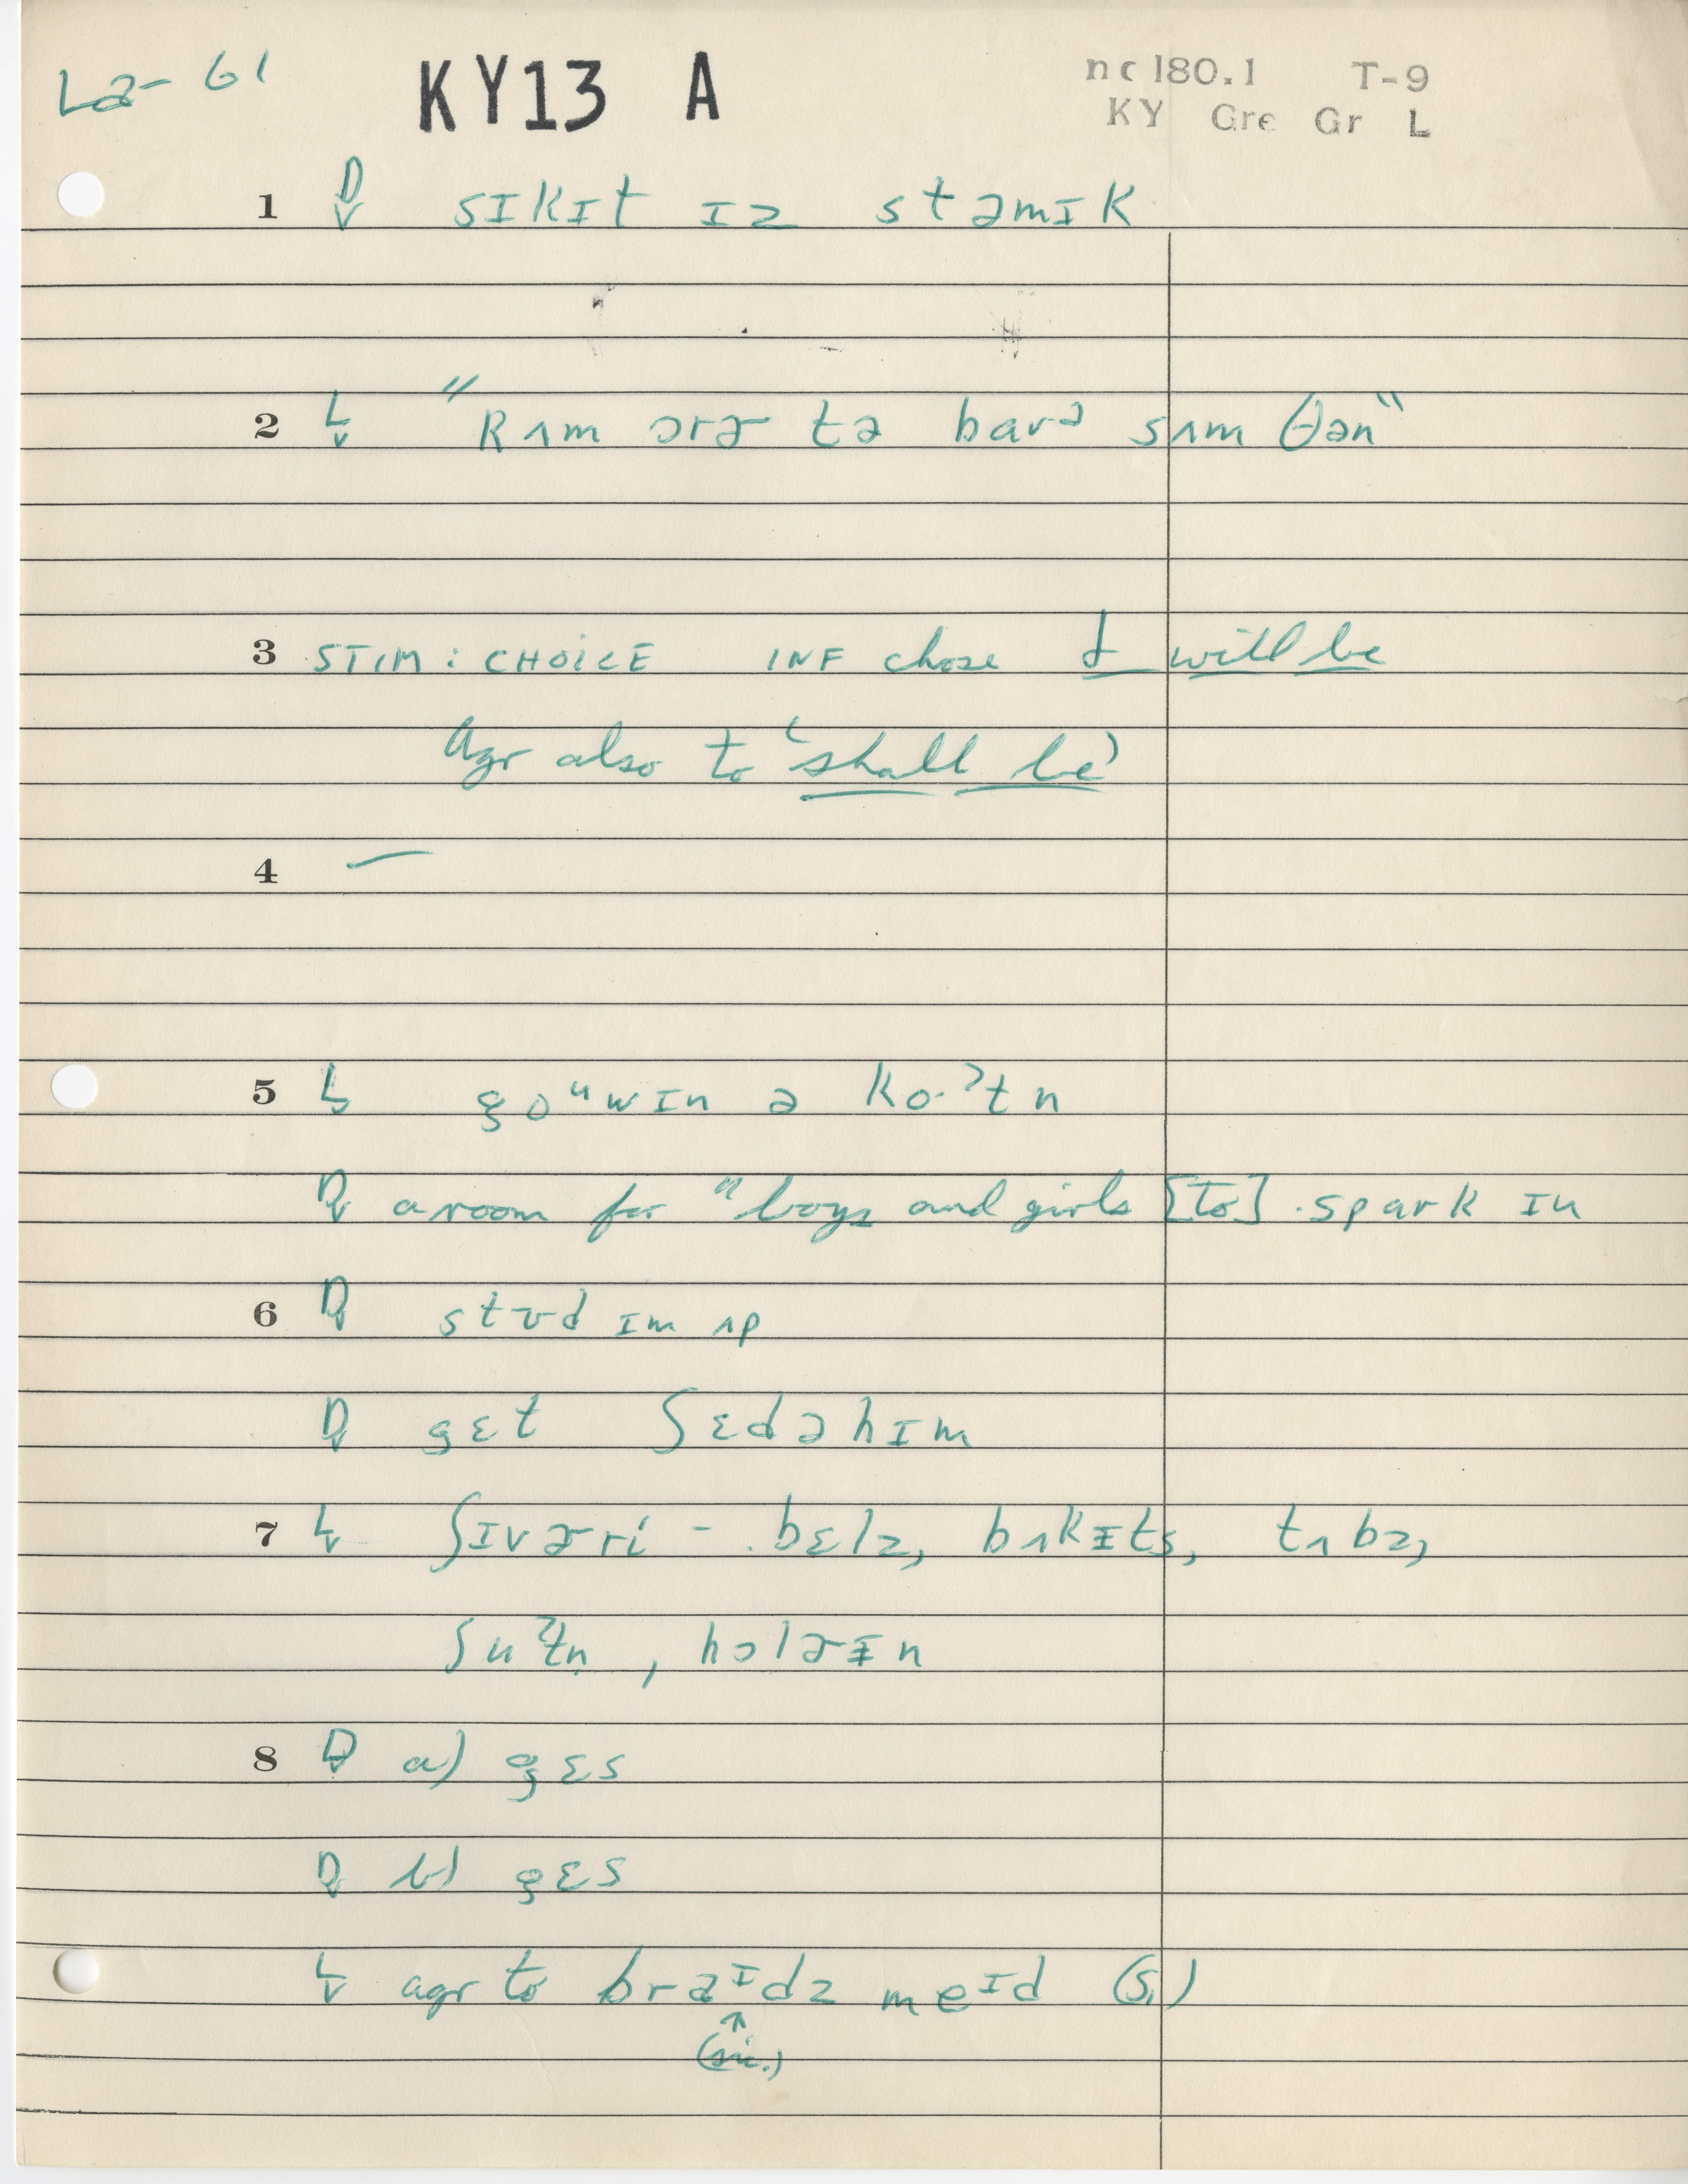 La- 61 KY13 A nc 180.1 T-9
KY Gre Gr L
1 D̬ sɪkɪt ɪz stəmɪk
2 L̬ "Rʌm ɔrɚ tə barə sʌm θən"
3 STIM: CHOICE INF chose I will be
Agr also to 'shall be'
4 —
5 L̬ goᵘwɪn ə ko·ˀtn
D̬ a room for "boys and girls [to] spark ɪn
6 D̬ stʊd ɪm ʌp
D̬ gɛt ʃɛdəhɪm
7 L̬ ʃɪvɚri - bɛlz, bʌkᵻts, tʌbz,
ʃuˀtn, holɚᵻn
8 D̬ a) gɛs
D̬ b) gɛs
L̬ agr to braᶦdz meᶦd (s,)
↑
(sic.)